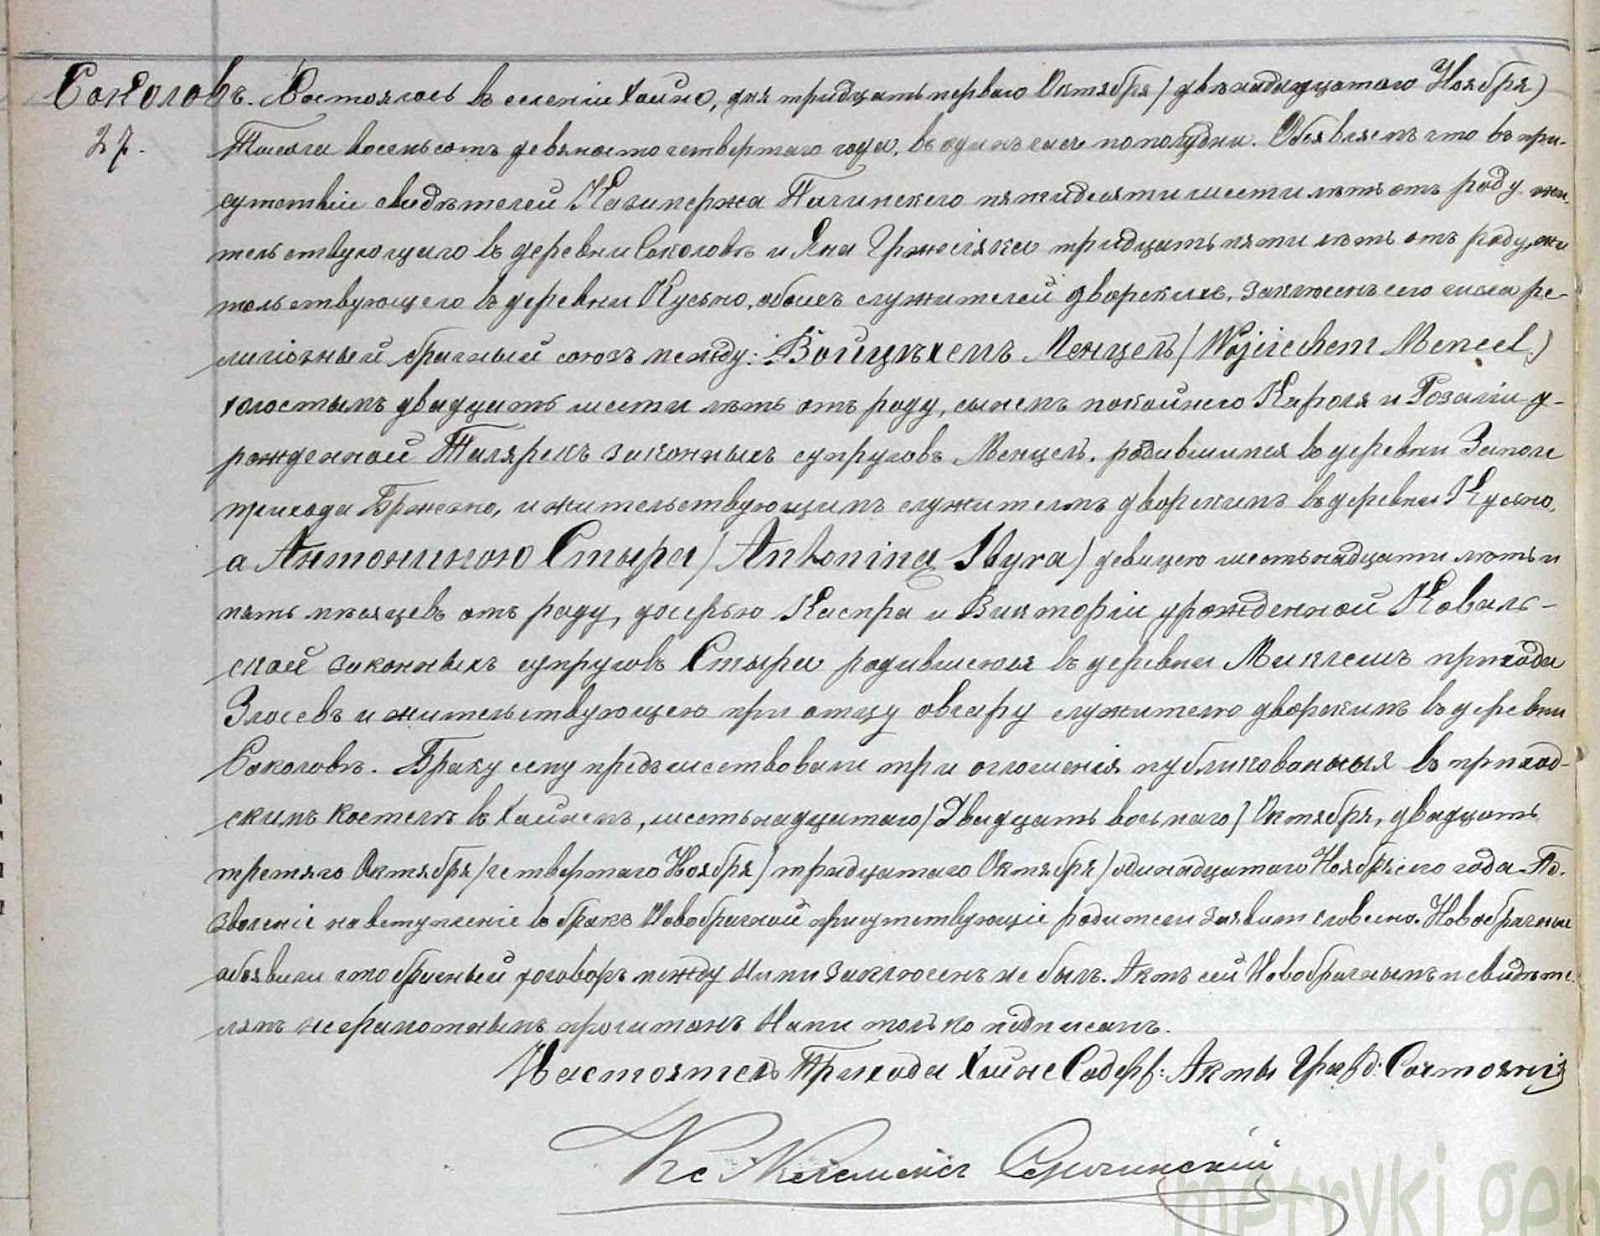 Соколовъ. Состоялось въ селеніи Хойно, дня тридцать перваго Октября / двѣнадцатаго Ноября)
27. Тысяча восемьсотъ девяносто четвертаго года, въ одинъ часъ пополудни. Объявляемъ что въ при-
сутствіи свидѣтелей Казимержа пятидесяти шести лѣтъ отъ роду жи-
тельствующаго въ деревни Соколовѣ и Яна Гржесяка тридцать пяти лѣтъ отъ роду, жи
тельствующего въ деревни обоихъ служителей дворскихъ, заключенъ сего числа ре-
лигіозный брачный союзъ между: Войцѣхемъ Менцель / Wojciechem Mencel)
холостымъ двадцать шести лѣтъ отъ роду, сыномъ покойнего Кароля и Розаліи у-
рожденной Талярекъ законныхъ супруговъ Менцель, родившимся въ деревни
прихода и жительствующимъ служителемъ дворскимъ въ деревни
а Антониною Стыра / Antonina Styra / девицею шестьнадцати лѣтъ и
пять мѣсяцевъ отъ роду, дочерью Каспра и Викторіи урожденной Коваль-
ской законныхъ супруговъ Стыра родившеюся въ деревни прихода
и жительствующею при отцу овчару служителю дворскимъ въ деревни
Соколовѣ. Браку сему предъшествовали три оглошенія публикованныя въ приход-
скимъ костелѣ въ шестьнадцатаго / Двадцать восьмаго / Октября, двадцать
третяго Октября / четвертаго Ноября / тридцатаго Октября / одинадцатаго Ноября сего года. По-
зволеніе на вступленіе въ бракъ Новобрачной присутствующіе родители заявили словесно. Новобрачные
объявили что брачный договоръ между ними заключенъ не былъ. Актъ сей Новобрачнымъ и свидѣте-
лямъ неграмотнымъ прочитанъ Нами только подписанъ.
Настоятель Прихода Хойне Содерж: Акты Гражд: Состоянія
Кс